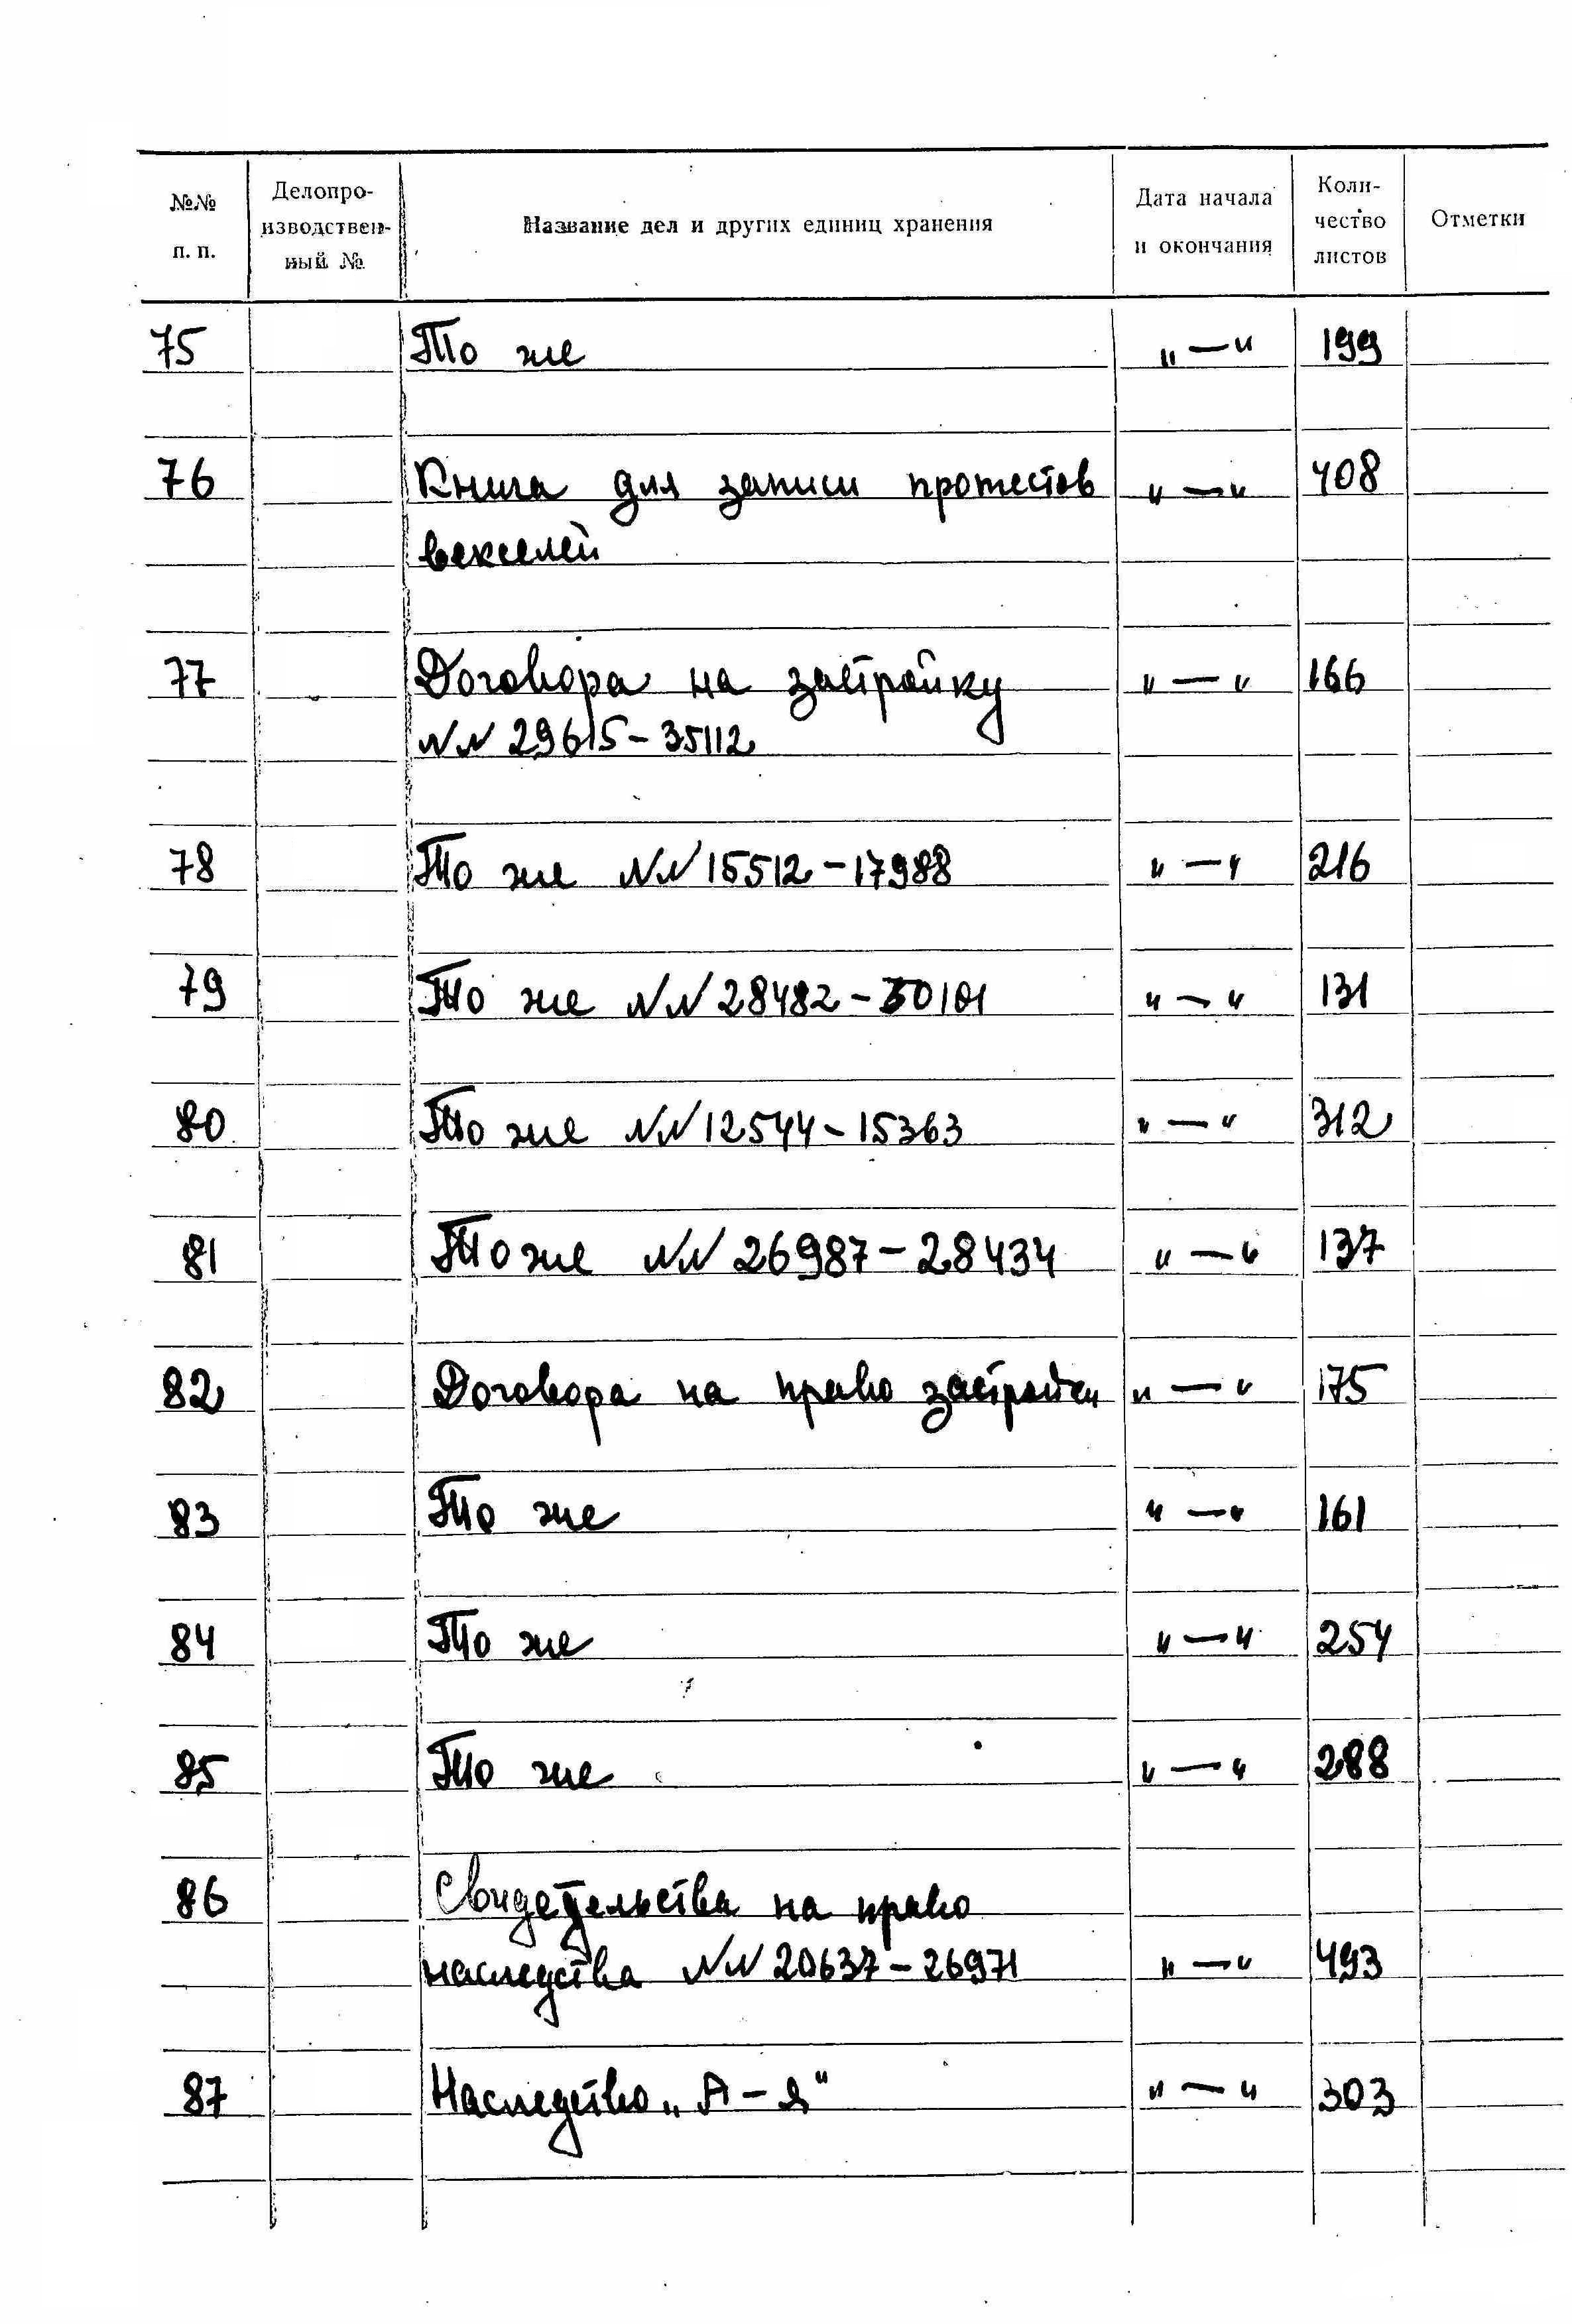 №№ п. п. Делопро-изводствен-ный № Название дел и других единиц хранения Дата начала и окончания Коли-чество листов Отметки
75 То же "—" 199
76 Книга для записи протестов "—" 408
векселей
77 Договора на застройку "—" 166
NN 29615-35112
78 То же NN 15512-17988 "—" 216
79 То же NN 28482-30101 "—" 131
80 То же NN 12544-15363 "—" 312
81 То же NN 26987-28434 "—" 137
82 Договора на право застройки "—" 175
83 То же "—" 161
84 То же "—" 254
85 То же "—" 288
86 Свидетельства на право
наследства NN 20637-26971 "—" 493
87 Наследство „А-Я" "—" 303